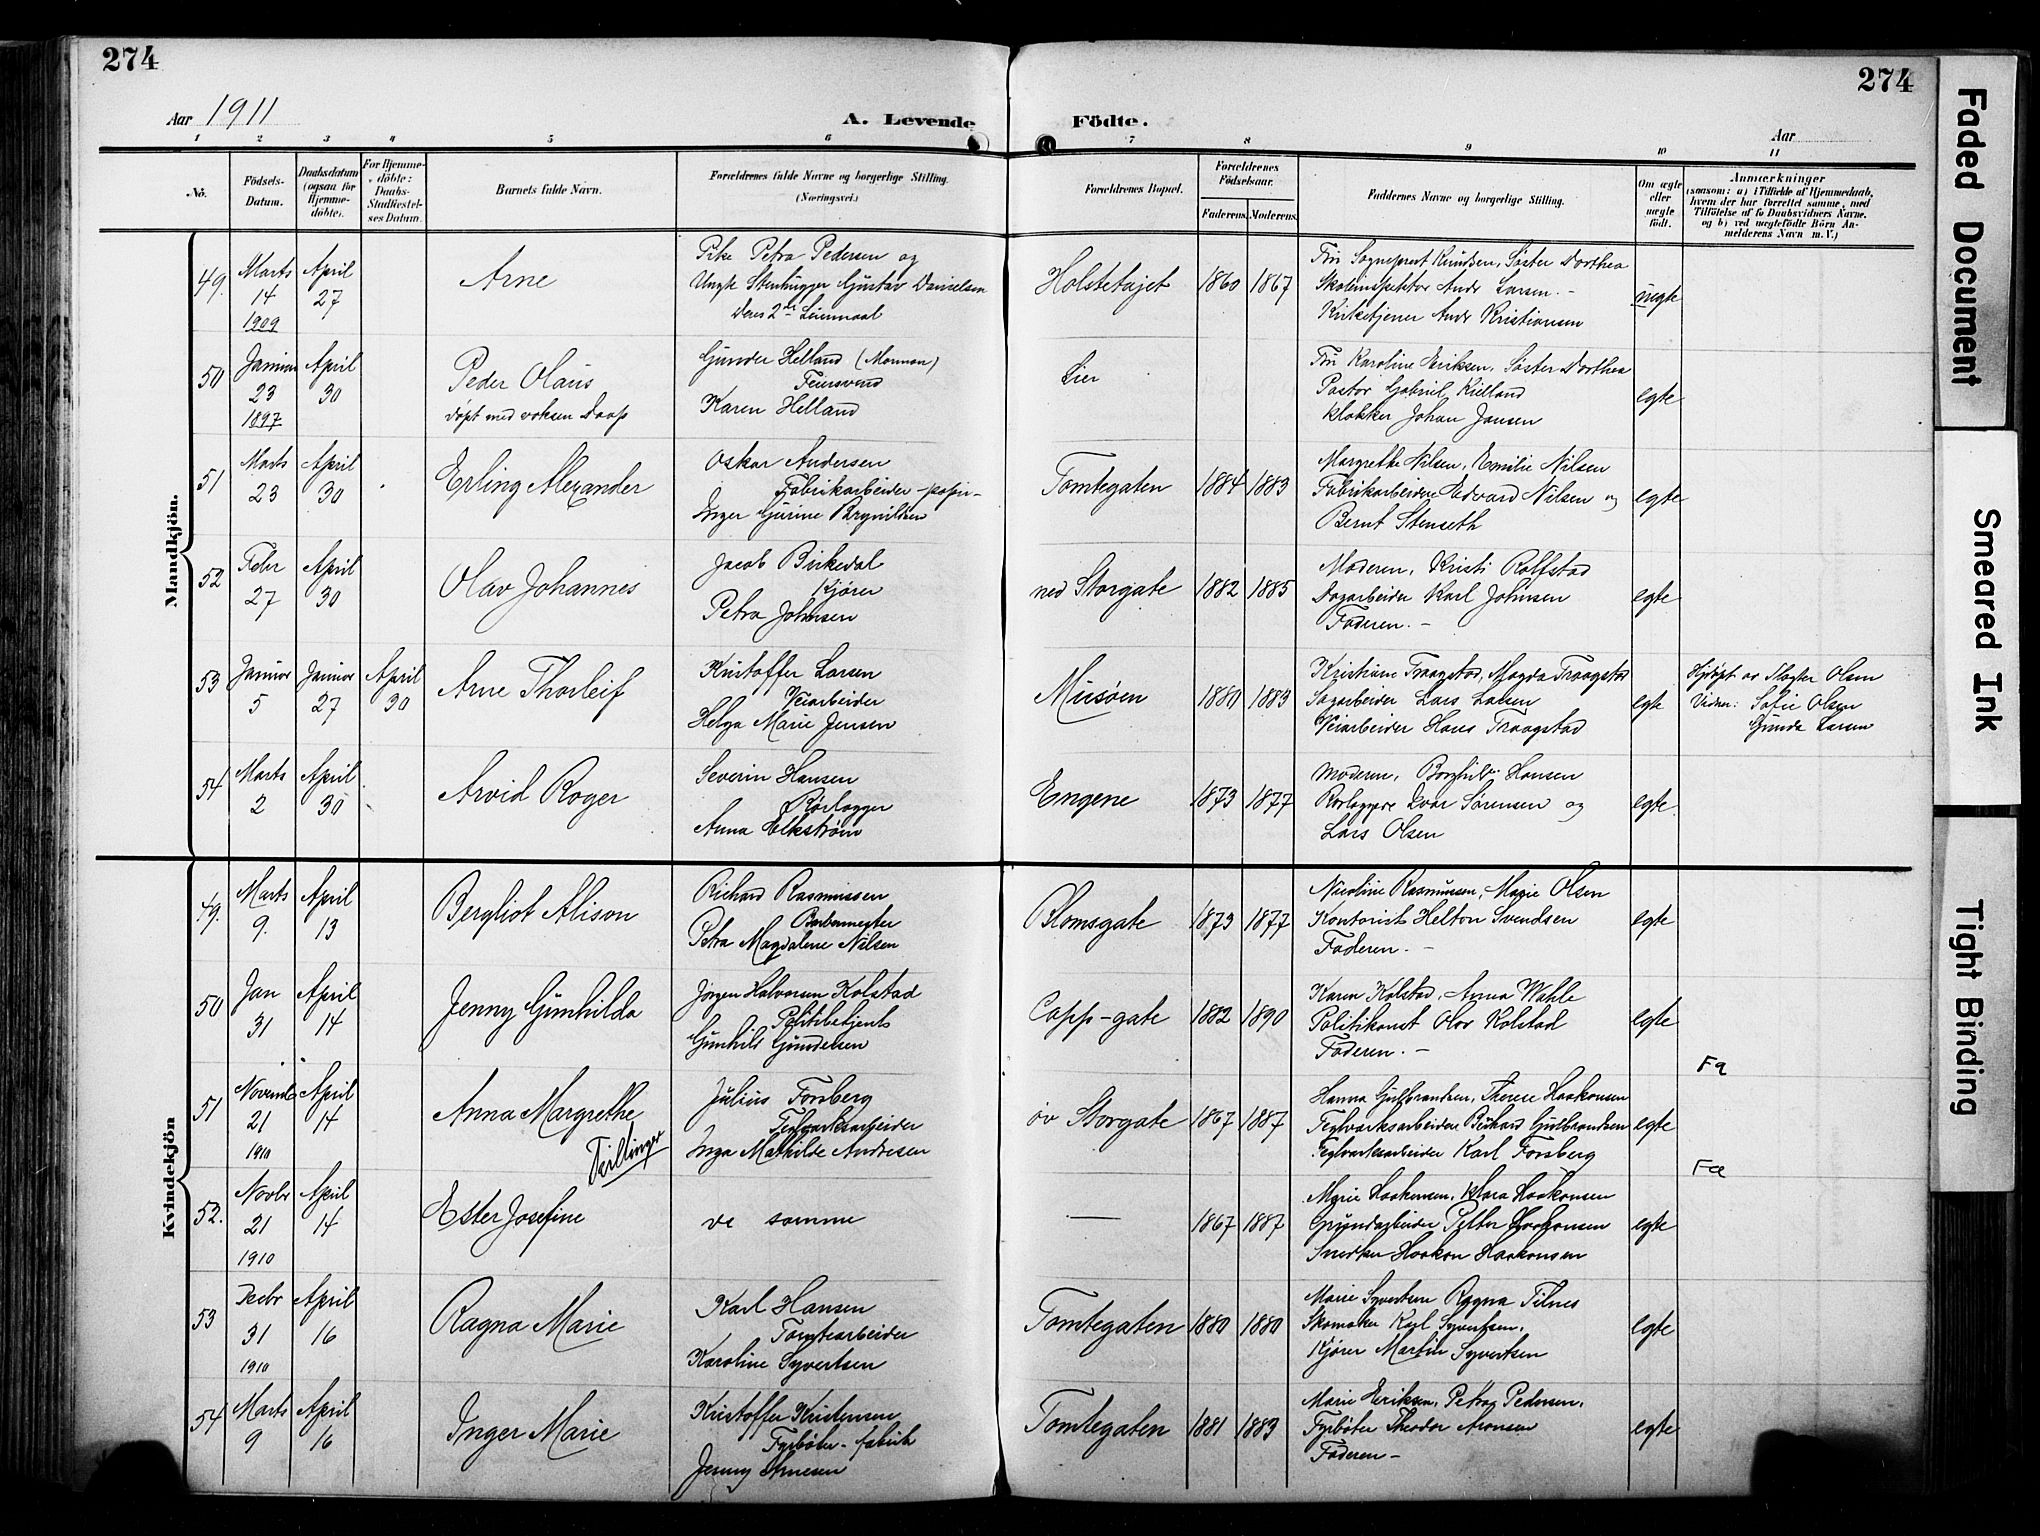 274
274
Aar 1911
A. Levende Födte.
Aar
1 2 3 4 5 6 7 8 9 10 11
No.
Födsels-Datum.
Daabsdatum (ogsaa for Hjemmedöbte).
For Hjemmedöbte: Daabs-Stadfæstelses Datum.
Barnets fulde Navn.
Forældrenes fulde Navne og borgerlige Stilling. (Næringsvei.)
Forældrenes Bopæl.
Forældrenes Födselsaar.
Faderens. Moderens.
Faddernes Navne og borgerlige Stilling.
Om ægte eller uægte födt.
Anmærkninger
(saasom: a) i Tilfælde af Hjemmedaab, hvem der har forrettet samme, med Tilföielse af to Daabsvidners Navne, og b) ved uægtefödte Börn Anmelderens Navn m. V.)
Mandkjön.
49. Marts 14 1909 April 27 Arne
Pike Petra Pedersen og
Ungk Stenhugger Gustav Danielsen
Deres 2det Leiermaal
Holstetajet 1860 1867
Fru Sogneprest Knudsen, Søster Dorthea
Skoleinspektør Andr Larsen. -
Kirketjener Andr Kristiansen
uegte
50 Januar 23 1897 April 30 Peder Olaus
døpt med voksen Daap
Gunder Helland (Mormon)
Feiersvend
Karen Helland
Lier
Fru Karoline Eriksen, Søster Dorthea
Pastor Gabriel Kielland
klokker Johan Jansen
egte
51 Marts 23 April 30 Erling Alexander
Oskar Andersen
Fabrikarbeider -papir-
Inger Gurine Brynildsen
Tomtegaten 1884 1883
Margrethe Nilsen, Emilie Nilsen
Fabrikarbeidere Edvard Nilsen og
Bernt Stenseth
egte
52 Febr 27 April 30 Olav Johannes
Jacob Birkedal
Kjører
Petra Johnsen
ned Storgate 1882 1885
Moderen, Kristi Rolfstad
Dagarbeider Karl Johnsen
Faderen. -
egte
53 Januar 5 Januar 27 April 30 Arne Thorleif
Kristoffer Larsen
Veiarbeider
Helga Marie Jensen
Musøen 1880 1883
Kristiane Traagstad, Magda Traagstad
Sagarbeider Lars Larsen
Veiarbeider Hans Traagstad
egte
Hjdøpt av Slagter Olsen
Vidner: Sofie Olsen
Gunda Larsen
54 Marts 2 April 30 Arvid Roger
Severin Hansen
Rørlægger
Anna Ekstrøm
Engene 1873 1877
Moderen, Borghild Hansen
Rørlæggere Ivar Sørensen og
Lars Olsen
egte
Kvindekjön
49. Marts 9. April 13 Bergliot Alison
Richard Rasmussen
Barbermester
Petra Magdalene Nilsen
Blomsgate 1873 1877
Nicoline Rasmussen, Marie Olsen
Kontorist Helton Svendsen
Faderen. -
egte
50 Jan 31 April 14 Jenny Gunhilda
Jørgen Halvorsen Kolstad
Politibetjent
Gunhild Gundersen
Capp-gate 1882 1890
Karen Kolstad, Anna Wahle
Politikonst Olav Kolstad
Faderen. -
egte
51 Novemb 21 1910 April 14 Anna Margrethe
Tvillinger
Julius Forsberg
Teglverksarbeider
Inga Mathilde Andresen
øv Storgate 1867 1887
Hanna Gulbrandsen, Therese Haakonsen
Teglverksarbeidere Rikard Gulbrandsen
Teglverksarbeider Karl Forsberg
egte
Fa
52. Novbr 21 1910 April 14 Ester Josefine
de samme
— 1867 1887
Marie Haakensen, Klara Haakonsen
Grundarbeider Petter Haakonsen
Snedker Haakon Haakonsen
egte
Fa
53 Decbr 31 1910 April 16 Ragna Marie
Karl Hansen
Tomtearbeider
Karoline Syvertsen
Tomtegaten 1880 1880
Marie Syvertsen Ragna Tilnes
Skomaker Karl Syvertsen,
Kjører Martin Syvertsen
egte
54 Marts 9 April 16 Inger Marie
Kristoffer Kristensen
Fyrbøter - fabrik
Jenny Arnesen
Tomtegaten 1881 1883
Marie Eriksen, Petra Pedersen,
Fyrbøter Theodor Aronsen
Faderen -
egte
Faded Document
Smeared Ink
Tight Binding